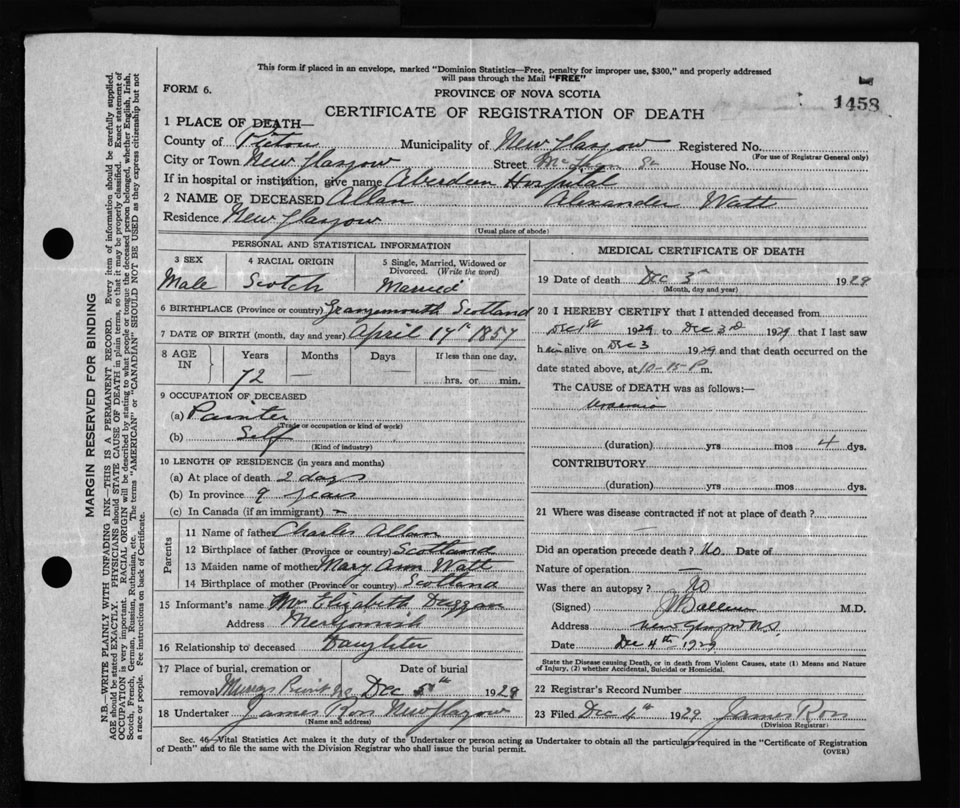 This form if placed in an envelope, marked "Dominion Statistics—Free, penalty for improper use, $300," and properly addressed
will pass through the Mail "FREE"
FORM 6.
PROVINCE OF NOVA SCOTIA
1458
CERTIFICATE OF REGISTRATION OF DEATH
1 PLACE OF DEATH—
County of Pictou Municipality of New Glasgow Registered No.
(For use of Registrar General only)
City or Town New Glasgow Street House No.
If in hospital or institution, give name Aberdeen Hospital
2 NAME OF DECEASED Allan Alexander Watt
Residence New Glasgow
(Usual place of abode)
PERSONAL AND STATISTICAL INFORMATION
3 SEX
Male
4 RACIAL ORIGIN
Scotch
5 Single, Married, Widowed or
Divorced. (Write the word)
Married
6 BIRTHPLACE (Province or country) Grangemouth Scotland
7 DATE OF BIRTH (month, day and year) April 17th 1857
8 AGE
IN
Years Months Days If less than one day,
72 — — hrs. or min.
9 OCCUPATION OF DECEASED
(a) Painter
(Trade or occupation or kind of work)
(b) Self
(Kind of industry)
10 LENGTH OF RESIDENCE (in years and months)
(a) At place of death 2 days
(b) In province 9 years
(c) In Canada (if an immigrant) —
Parents
11 Name of father Charles Allan
12 Birthplace of father (Province or country) Scotland
13 Maiden name of mother Mary Ann Watt
14 Birthplace of mother (Province or country) Scotland
15 Informant's name Mrs Elizabeth
Address Merigomish
16 Relationship to deceased Daughter
17 Place of burial, cremation or Date of burial
removal Murrays Point Dec 5th 1929
18 Undertaker James Ross New Glasgow
(Name and address)
MEDICAL CERTIFICATE OF DEATH
19 Date of death Dec 3rd 1929
(Month, day and year)
20 I HEREBY CERTIFY that I attended deceased from
Dec 1st 1929 to Dec 3rd 1929 that I last saw
him alive on Dec 3 1929 and that death occurred on the
date stated above, at 10-15 P m.
The CAUSE of DEATH was as follows:—
Uraemia
(duration) yrs mos 4 dys.
CONTRIBUTORY
(duration) yrs mos dys.
21 Where was disease contracted if not at place of death?
Did an operation precede death? No Date of
Nature of operation —
Was there an autopsy? No
(Signed) M.D.
Address New Glasgow N.S.
Date Dec 4th 1929
State the Disease causing Death, or in death from Violent Causes, state (1) Means and Nature
of Injury, (2) whether Accidental, Suicidal or Homicidal.
22 Registrar's Record Number
23 Filed Dec 4th 1929 James Ross
(Division Registrar)
Sec. 46—Vital Statistics Act makes it the duty of the Undertaker or person acting as Undertaker to obtain all the particulars required in the "Certificate of Registration
of Death" and to file the same with the Division Registrar who shall issue the burial permit.
(OVER)
MARGIN RESERVED FOR BINDING
N.B.—WRITE PLAINLY WITH UNFADING INK—THIS IS A PERMANENT RECORD. Every item of information should be carefully supplied.
AGE should be stated EXACTLY. PHYSICIANS should STATE CAUSE OF DEATH in plain terms, so that it may be properly classified. Exact statement of
OCCUPATION is very important. RACIAL ORIGIN will be described by stating to what people or tongue the deceased person belonged, whether English, Irish,
Scotch, French, German, Russian, Ruthenian, etc. The terms "AMERICAN" or "CANADIAN" SHOULD NOT BE USED as they express citizenship but not
a race or people. See instructions on back of Certificate.